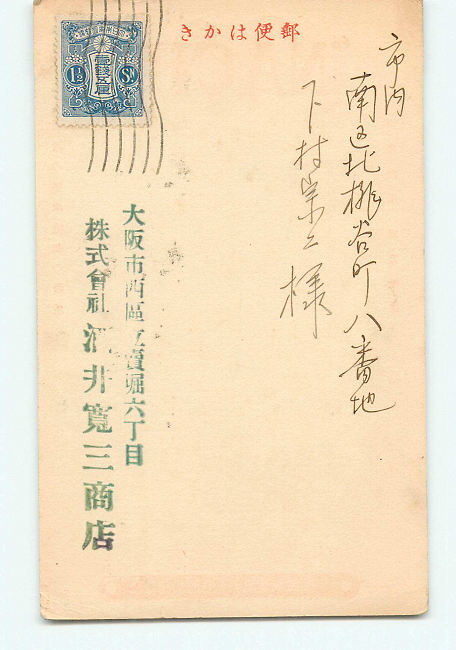 郵便はかき
市内
南区北桃谷町八番地
下村宗二様
壹錢五厘
1½ Sn
大阪市西區立賣堀六丁目
株式會社 酒井寬三商店